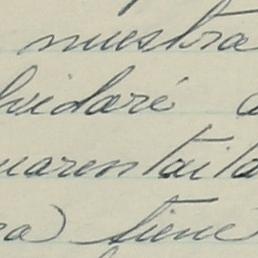 nuestra
lvidaré a
uarentaita
ra) tiene